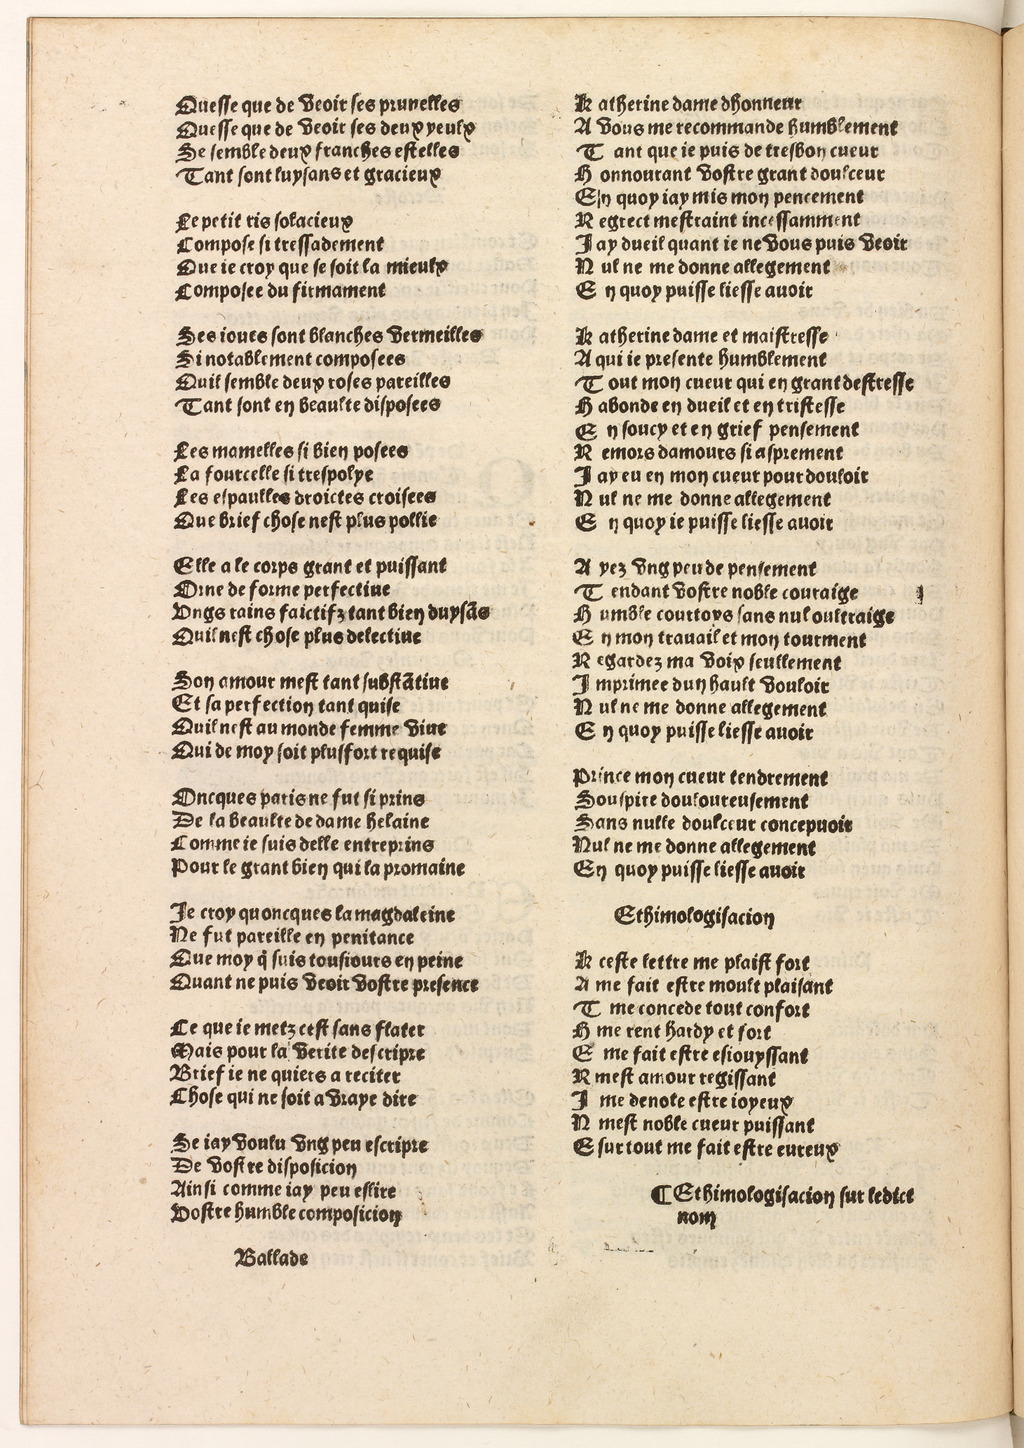 Quesse que de veoir ses prunelles
Quesse que de veoir ses deux yeulx
Se semble deux franches estelles
Tant sont luysans et gracieux
Le petit ris solacieux
Compose si tressadement
Que ie croy que se soit la mieulx
Composee du firmament
Ses ioues sont blanches vermeilles
Si notablement composees
Quil semble deux roses pareilles
Tant sont en beaulte disposees
Les mamelles si bien posees
La fourcelle si trespolye
Les espaulles droictes croisees
Que brief chose nest plus pollie
Elle a le corps grant et puissant
Orne de forme perfectiue
Vngs rains faictifz tant bien duysãs
Quil nest chose plus delectiue
Son amour mest tant substãtiue
Et sa perfection tant quise
Quil nest au monde femme viue
Qui de moy soit plus fort requise
Oncques paris ne fut si prins
De la beaulte de dame helaine
Comme ie suis delle entreprins
Pour le grant bien qui la promaine
Je croy quoncques la magdaleine
Ne fut pareille en penitance
Que moy q̃ suis tousiours en peine
Quant ne puis veoir vostre presence
Ce que ie metz cest sans flater
Mais pour la verite descripre
Brief ie ne quiers a reciter
Chose qui ne soit a vraye dire
Se iay voulu vng peu escripre
De vostre disposicion
Ainsi comme iay peu eslire
Vostre humble composicion
Ballade
K atherine dame dhonneur
A vous me recommande humblement
T ant que ie puis de tresbon cueur
H onnourant vostre grant doulceur
E n quoy iay mis mon pencement
R egrect mestraint incessamment
J ay dueil quant ie ne vous puis veoir
N ul ne me donne allegement
E n quoy puisse liesse auoir
K atherine dame et maistresse
A qui ie presente humblement
T out mon cueur qui en grant destresse
H abonde en dueil et en tristesse
E n soucy et en grief pensement
R emors damours si asprement
J ay eu en mon cueur pour douloir
N ul ne me donne allegement
E n quoy ie puisse liesse auoir
A yez vng peu de pensement
T endant vostre noble couraige
H umble courtoys sans nul oultraige
E n mon trauail et mon tourment
R egardez ma voix seullement
J mprimee dun hault vouloir
N ul ne me donne allegement
E n quoy puisse liesse auoir
Prince mon cueur tendrement
Souspire douloureusement
Sans nulle doulceur concepuoir
Nul ne me donne allegement
En quoy puisse liesse auoir
Ethimologisacion
K ceste lettre me plaist fort
A me fait estre moult plaisant
T me concede tout confort
H me rent hardy et fort
E me fait estre esiouyssant
R mest amour regissant
J me denote estre ioyeux
N mest noble cueur puissant
E sur tout me fait estre eureux
¶ Ethimologisacion sur ledict
nom